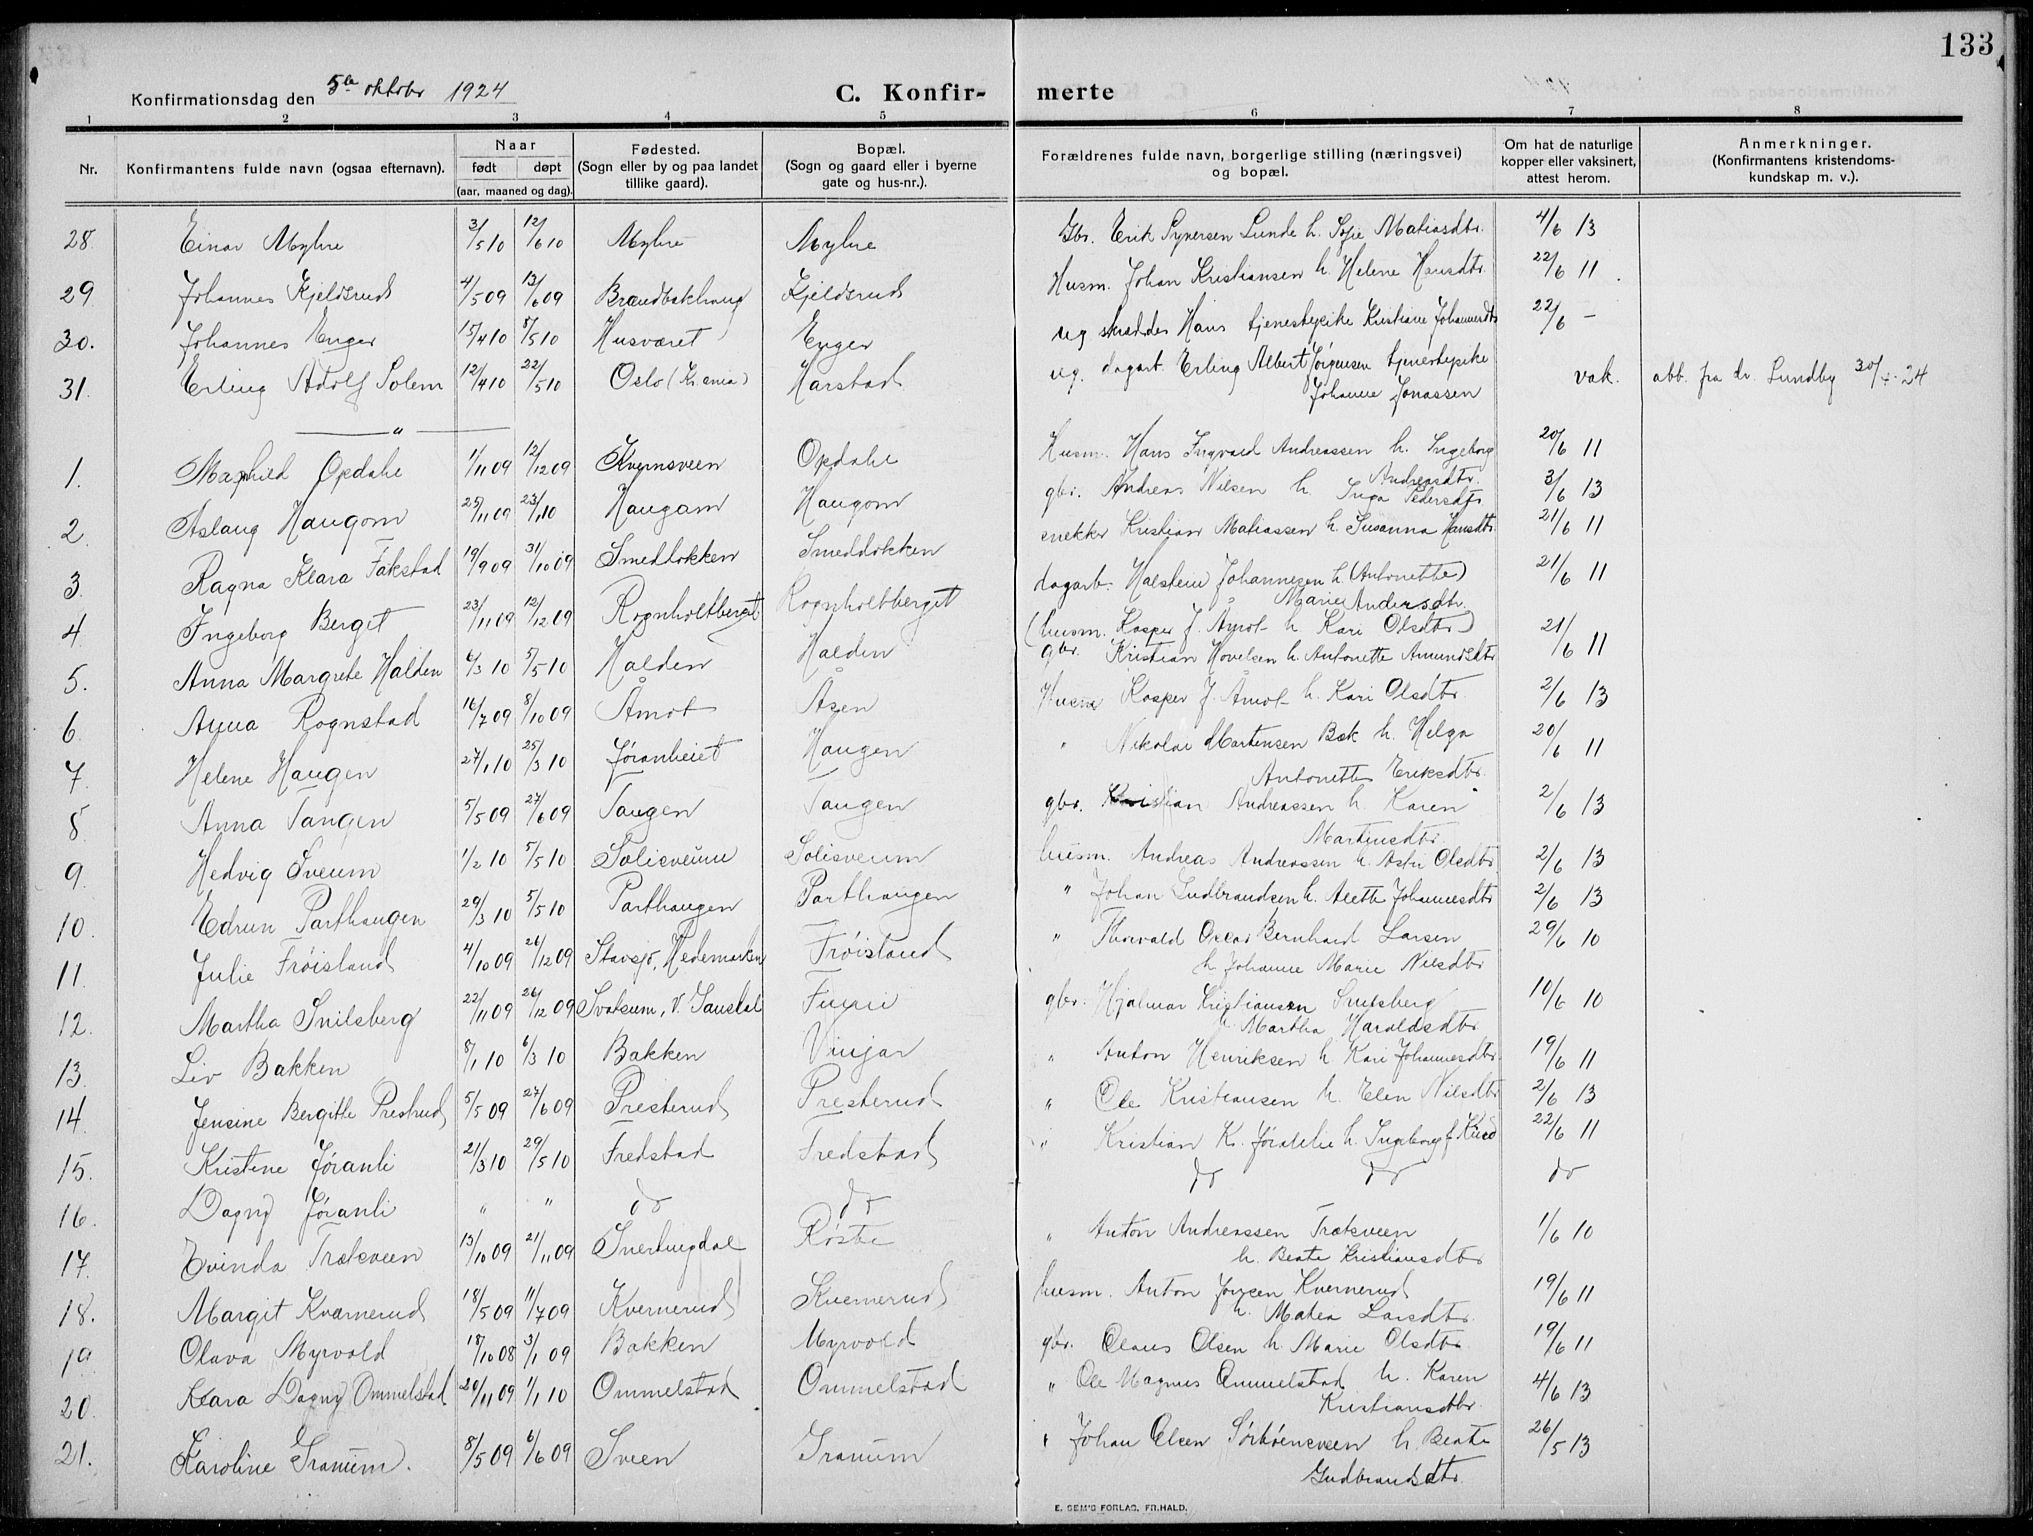 133
Konfirmationsdag den 5te oktober 1924 C. Konfir- merte
1 2 3 4 5 6 7 8
Nr. Konfirmantens fulde navn (ogsaa efternavn). Naar født døpt (aar, maaned og dag). Fødested. (Sogn eller by og paa landet tillike gaard). Bopæl. (Sogn og gaard eller i byerne gate og hus-nr.). Forældrenes fulde navn, borgerlige stilling (næringsvei) og bopæl. Om hat de naturlige kopper eller vaksinert, attest herom. Anmerkninger. (Konfirmantens kristendoms- kundskap m. v.).
28. Einar Myhre 3/5 10 12/6 10 Myhre Myhre Gbr. Erik Syversen Lunde h. Sofie Matiasdtr. 4/6 13
29. Johannes Kjeldsrud 4/5 09 13/6 09 Brændbakhaug Kjeldsrud Husm. Johan Kristiansen h. Helene Hansdtr. 22/6 11
30. Johannes Enger 15/4 10 5/5 10 Husværet Enger ug skrædder Hans tjenestepike Kristiane Johannesdtr 22/6 -
31. Erling Adolf Solem 12/4 10 22/5 10 Oslo (Kr.ania) Harstad ug. dagarb. Erling Albert Jørgensen tjenestepike vak. abb. fra dr. Lundby 30/4-24
Johanne Jonassen
"
1. Magnhild Opdahl 1/11 09 12/12 09 Kvernsveen Opdahl Husm. Hans Ingvald Andreassen h. Ingeborg 20/6 11
Andreasdtr.
2. Aslaug Haugom 25/11 09 23/1 10 Haugom Haugom gbr. Andreas Nilsen h. Inga Pedersdtr 3/6 13
3. Ragna Klara Fakstad 19/9 09 31/10 09 Smedlokken Smedlokken snekker Kristian Matiassen h. Susanna Hansdtr. 21/6 11
4. Ingeborg Berget 23/11 09 12/12 09 Rognholtberget Rognholtberget dagarb. Halstein Johannesen h. (Antonette) 21/6 11
Marie Andersdtr.
(husm. Kasper J. Åmot h Kari Olsdtr)
5. Anna Margrete Halden 6/3 10 5/5 10 Halden Halden gbr. Kristian Hovelsen h. Antonette Amundsdtr 21/6 11
6. Anna Rognstad 16/7 09 8/10 09 Åmot Åsen Husm Kasper J. Åmot h. Kari Olsdtr. 2/6 13
7. Helene Haugen 27/1 10 25/3 10 Jøranheiet Haugen " Nikolai Martensen Bak h. Helga 20/6 11
Antonette Eriksdtr.
8 Anna Tangen 5/5 09 27/6 09 Tangen Tangen gbr. Kristian Andreassen h. Karen 2/6 13
Martinsdtr.
9. Hedvig Sveum 1/2 10 5/5 10 Solisveum Solisveum husm. Andreas Andreassen h. Astri Olsdtr 2/6 13
10. Edrun Parthaugen 29/3 10 5/5 10 Parthaugen Parthaugen " Johan Gudbrandsen h. Alette Johannesdtr 2/6 13
11. Julie Frøisland 4/10 09 26/12 09 Stavsjø, Hedemarken Frøisland " Thorvald Oscar Bernhard Larsen 29/6 10
h Johanne Marie Nilsdtr
12. Martha Snilsberg 22/11 09 26/12 09 Svatsum, V. Gausdal gbr. Hjalmar Kristiansen Snilsberg 10/6 10
h. Martha Haraldsdtr.
13. Liv Bakken 8/1 10 6/3 10 Bakken Vinjar " Anton Henriksen h. Kari Johannesdtr. 19/6 11
14. Jensine Bergitte Prestrud 5/5 09 27/6 09 Presterud Presterud " Ole Kristiansen h. Elen Nilsdtr 2/6 13
15. Kristine Jøranli 21/3 10 29/5 10 Fredstad Fredstad " Kristian K. Jøranlie h. Ingeborg f. 22/6 11
16. Dagny Jøranli " " do do do do do
17. Evinda Trætsveen 13/10 09 21/11 09 Snertingdal Røste " Anton Andreassen Trætsveen 1/6 10
h. Beate Kristiansdtr
18. Margit Kvernerud 18/5 09 11/7 09 Kvernerud Kvernerud husm. Anton Joncen Kvernerud 19/6 11
h. Matea Larsdtr.
19 Olava Myrvold 18/10 08 3/1 09 Bakken Myrvold gbr. Claus Olsen h. Marie Olsdtr 19/6 11
20. Klara Dagny Ommelstad 20/11 09 1/1 10 Ommelstad Ommelstad " Ole Magnus Ommelstad h. Karen 4/6 13
Kristiansdtr.
21. Karoline Granum. 8/5 09 6/6 09 Sveen Granum " Johan Olsen h. Beate 26/5 13
Gudbrandsdtr.
E. SEM'S FORLAG, FR.HALD.